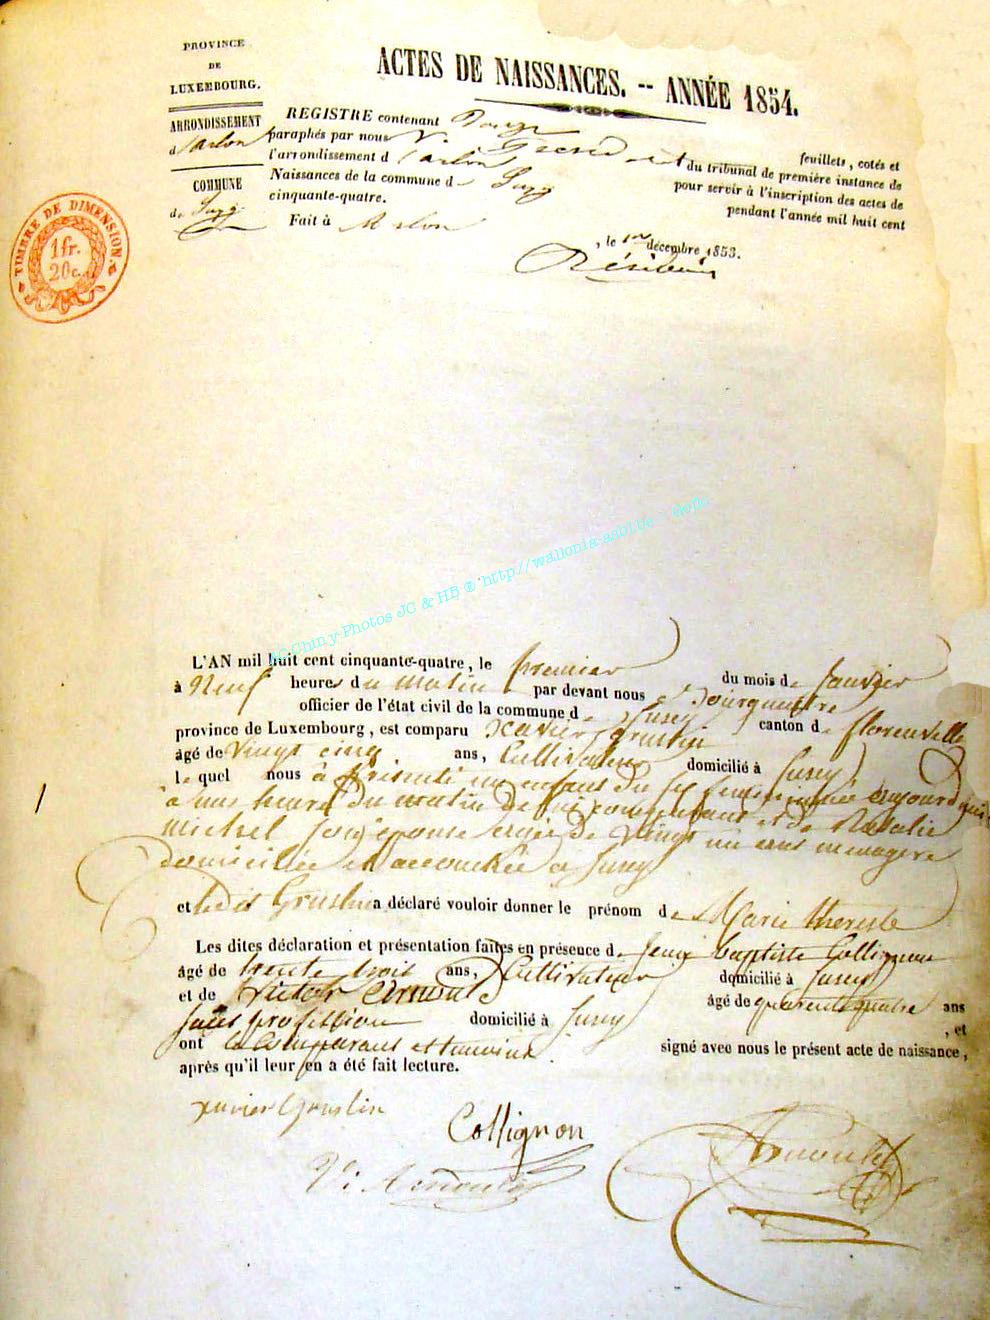 PROVINCE
DE
LUXEMBOURG.
ARRONDISSEMENT
d'arlon
COMMUNE
de Suxy
TIMBRE DE DIMENSION
1 fr.
20 c.
ACTES DE NAISSANCES. -- ANNÉE 1854.
REGISTRE contenant Douze feuillets, cotés et
paraphés par nous du tribunal de première instance de
l'arrondissement d'arlon pour servir à l'inscription des actes de
Naissances de la commune de Suxy pendant l'année mil huit cent
cinquante-quatre.
Fait à Arlon, le 1er décembre 1853.
AC Chiny-Photos JC & HB ® http://wallonia-asbl.be -
L'AN mil huit cent cinquante-quatre, le premier du mois de Janvier
à Neuf heures du matin par devant nous
officier de l'état civil de la commune de Suxy canton de florenville
province de Luxembourg, est comparu Xavier Gruslin
âgé de vingt cinq ans, Cultivateur domicilié à Suxy
le quel nous à présenté un enfant du
à une heure du matin de lui comparant et de Natalie
Michel son épouse agée de Vingt un ans menagere
domiciliée et accouchée a Suxy
et ledit Gruslin a déclaré vouloir donner le prénom de Marie therese
Les dites déclaration et présentation faites en présence de Jean baptiste Collignon
âgé de trente trois ans, Cultivateur domicilié à Suxy
et de Victor Arnould âgé de quarente quatre ans
sans proffession domicilié à Suxy, et
ont le Comparant et temoins signé avec nous le présent acte de naissance,
après qu'il leur en a été fait lecture.
xavier Gruslin
Collignon
Vi Arnould